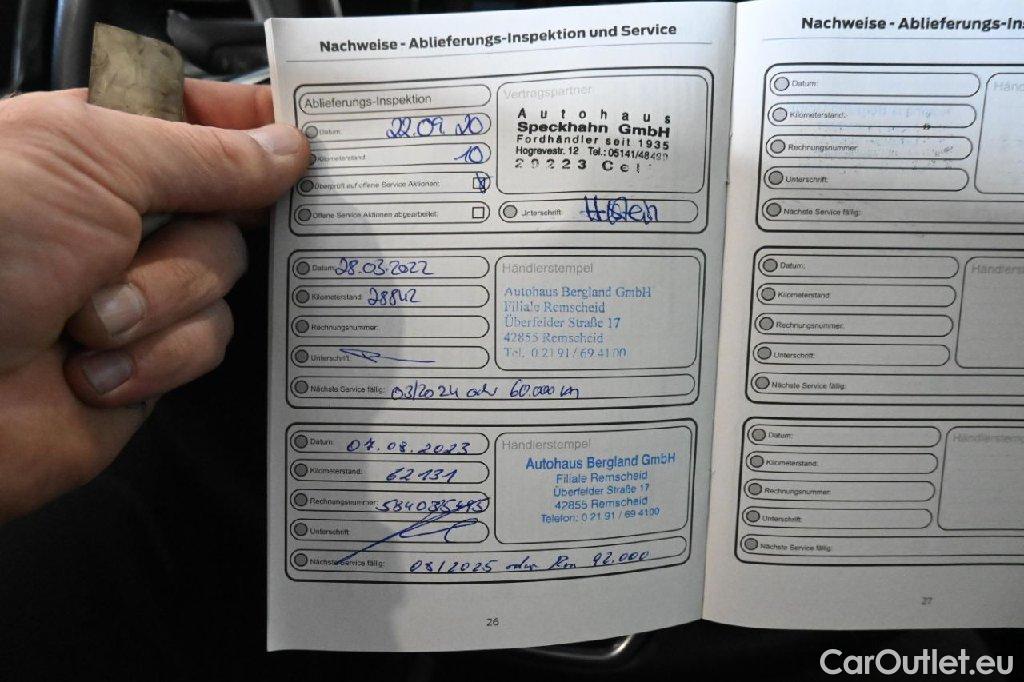 Nachweise - Ablieferungs-Inspektion und Service
Ablieferungs-Inspektion
Datum: 22.09.20
Kilometerstand: 10
Überprüft auf offene Service Aktionen:
Offene Service Aktionen abgearbeitet:
Vertragspartner
Autohaus
Speckhahn GmbH
Fordhändler seit 1935
Hogrevestr. 12 Tel.: 05141/48490
29223 Cel
Unterschrift:
Datum: 28.03.2022
Kilometerstand: 28842
Rechnungsnummer:
Unterschrift:
Händlerstempel
Autohaus Bergland GmbH
Filiale Remscheid
Überfelder Straße 17
42855 Remscheid
Tel. 0 21 91 / 69 41 00
Nächste Service fällig: 03/2024 oder 60.000 km
Datum: 07.08.2023
Kilometerstand: 62131
Rechnungsnummer:
Unterschrift:
Händlerstempel
Autohaus Bergland GmbH
Filiale Remscheid
Überfelder Straße 17
42855 Remscheid
Telefon: 0 21 91 / 69 4100
Nächste Service fällig: 08/2025 oder km 92.000
26
Nachweise - Ablieferungs-Ins
Datum:
Kilometerstand:
Rechnungsnummer:
Unterschrift:
Händ
Nächste Service fällig:
Datum:
Kilometerstand:
Rechnungsnummer:
Unterschrift:
Händlerst
Nächste Service fällig:
Datum:
Kilometerstand:
Rechnungsnummer:
Unterschrift:
Händlerstem
Nächste Service fällig:
27
CarOutlet.eu